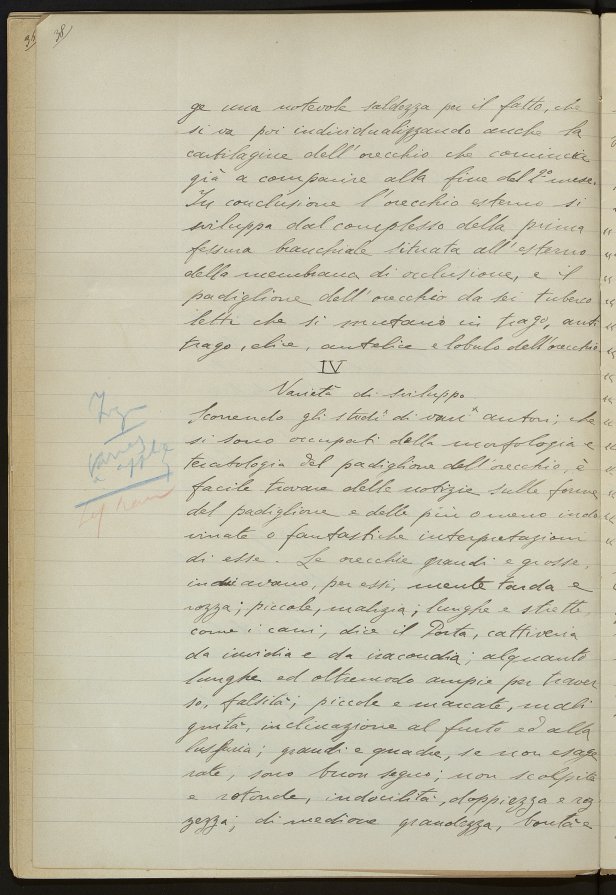 38)
ge una notevole saldezza per il fatto, che
si va poi individualizzando anche la
cartilagine dell'orecchio che comincia
già a comparire alla fine del 2° mese.
In conclusione l'orecchio esterno si
sviluppa dal complesso della prima
fessura branchiale situata all'esterno
della membrana di occlusione, e il
padiglione dell'orecchio da sei tuberco
letti che si mutano in trago, anti
trago, elice, antelice e lobulo dell'orecchio.
IV
Varietà di sviluppo
Scorrendo gli studi di vari autori, che
si sono occupati della morfologia e
teratologia del padiglione dell'orecchio, è
facile trovare delle notizie sulle forme
del padiglione e delle più o meno indo
vinate o fantastiche interpretazioni
di esse. Le orecchie grandi e grosse,
indicavano, per essi, mente tarda e
rozza; piccole, malizia; lunghe e strette
come i cani, dice il Porta, cattiveria
da invidia e da iracondia; alquanto
lunghe ed oltremodo ampie per traver
so, falsità; piccole e mancate, mali
gnità, inclinazione al furto ed alla
lussuria; grandi e quadre, se non esage
rate, sono buon segno; non scolpite
e rotonde, indocilità, doppiezza e roz
zezza; di mediocre grandezza, bontà e